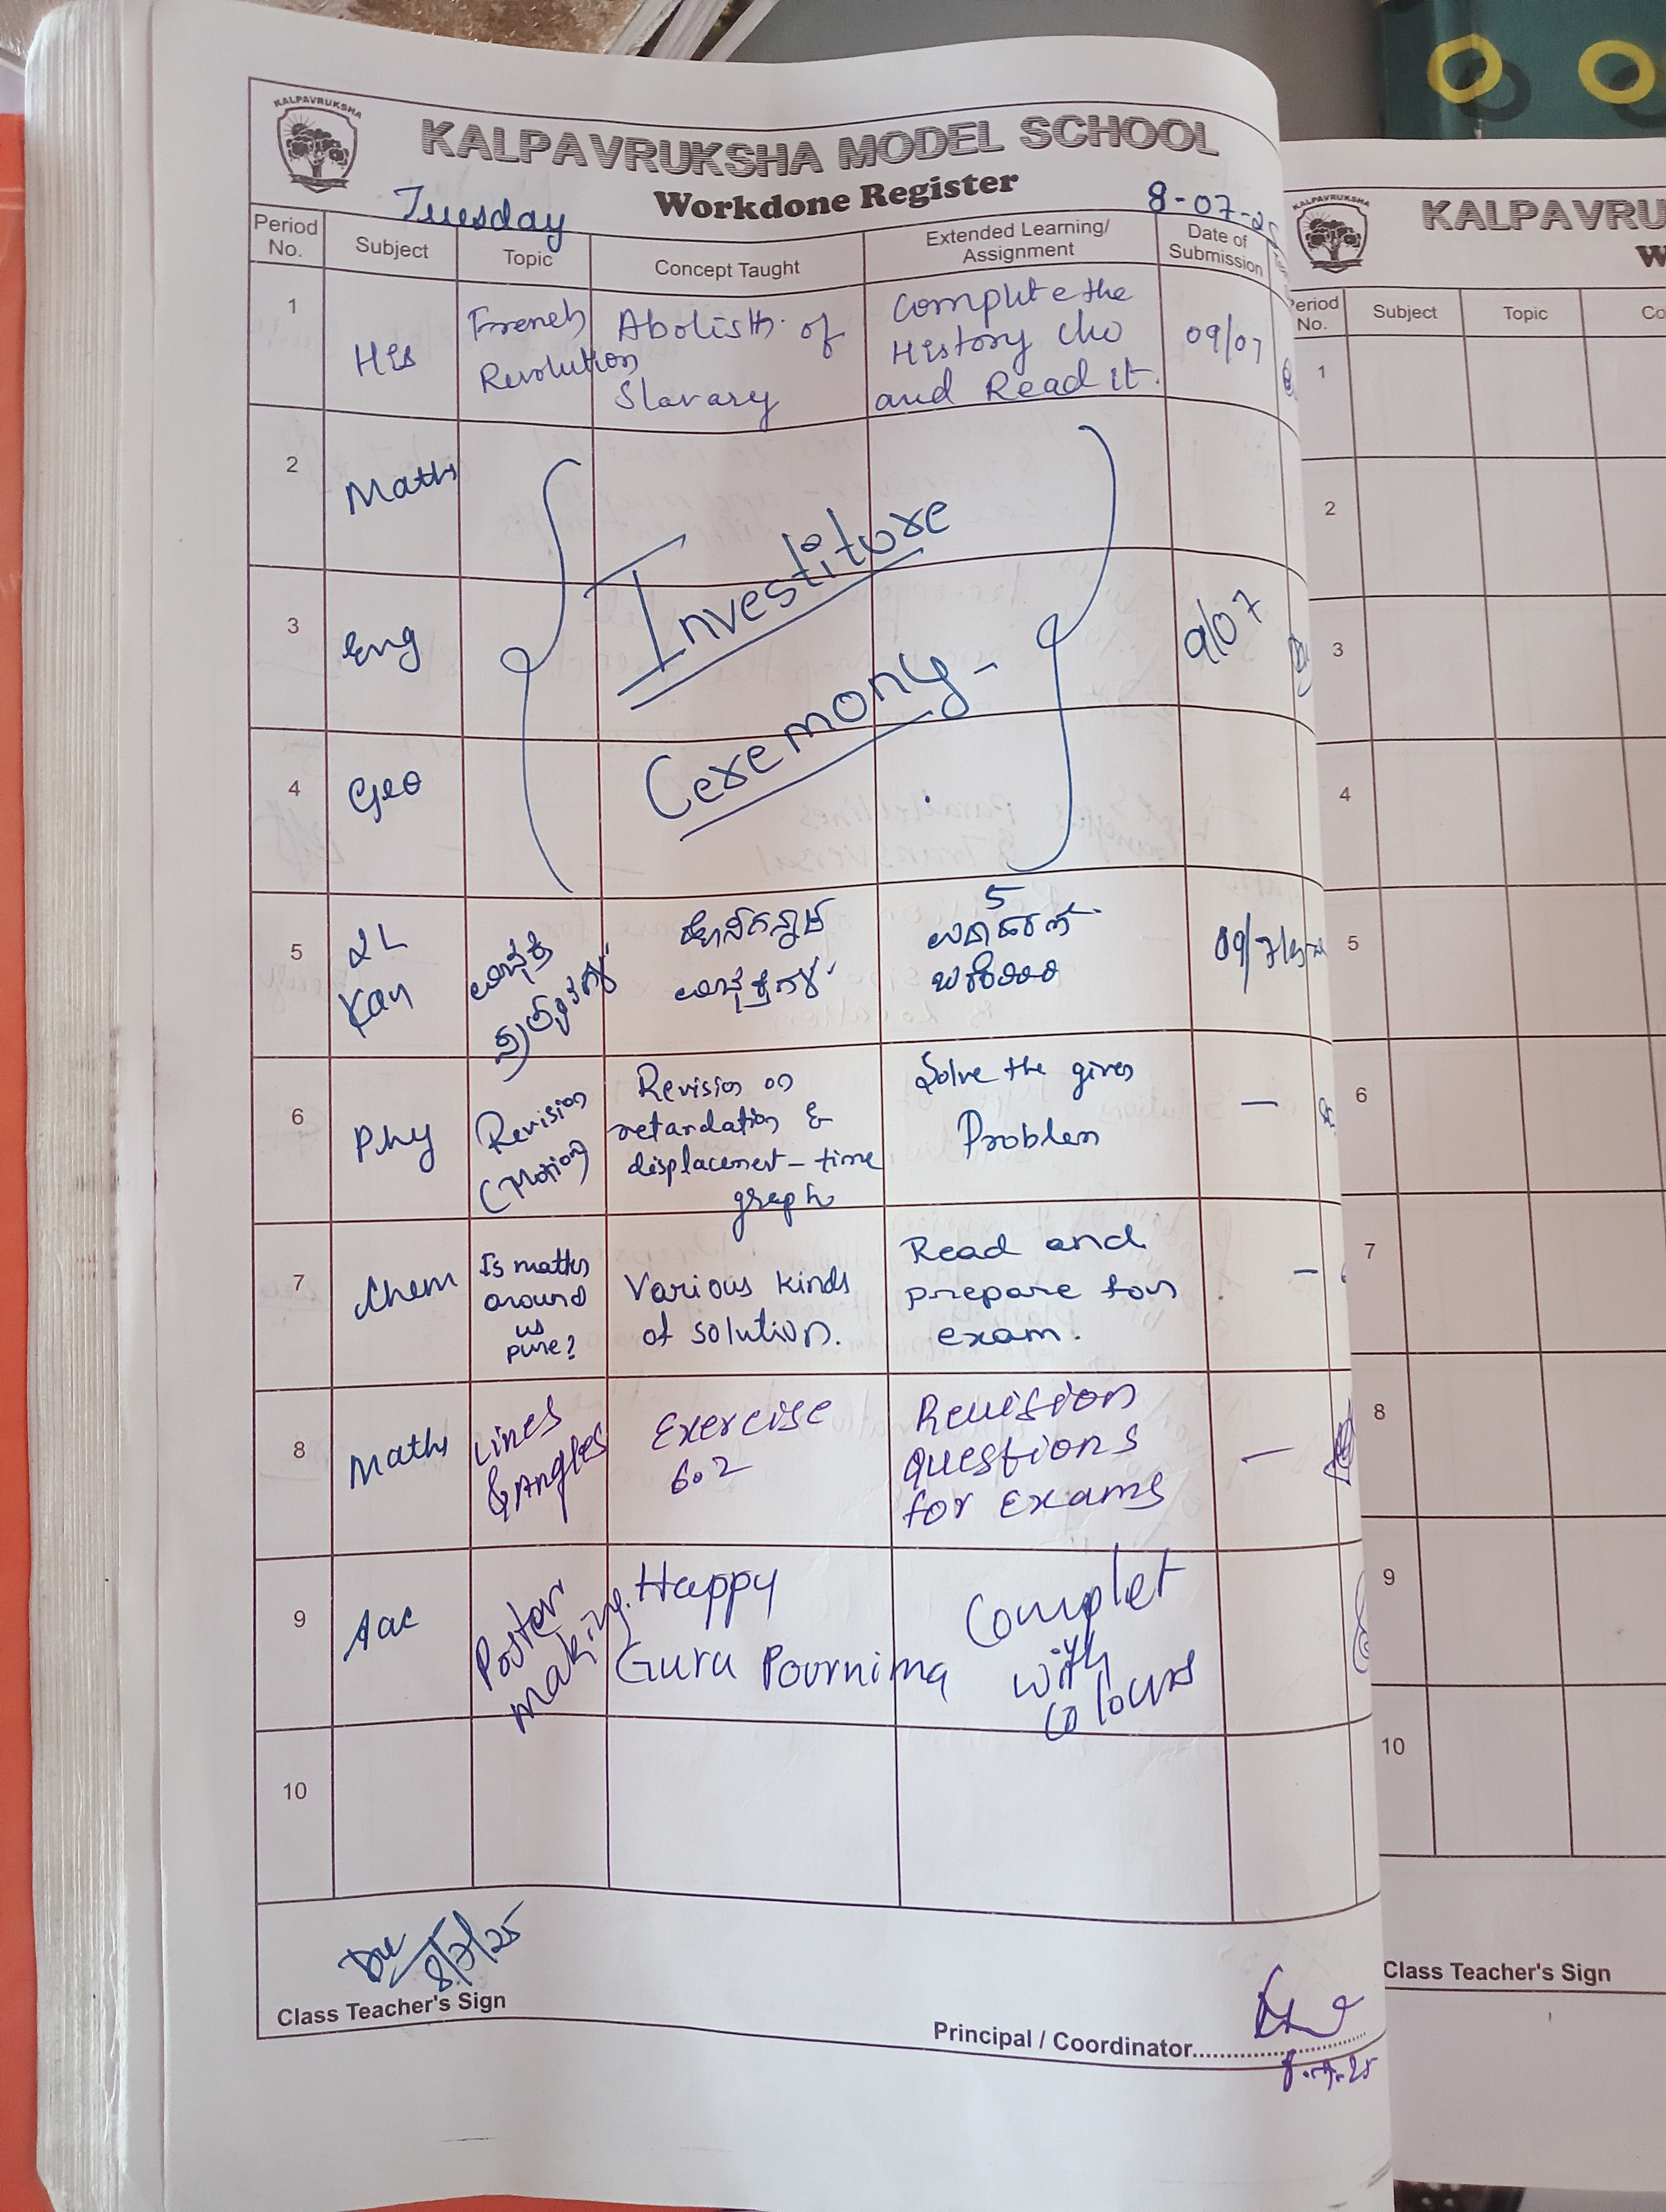 KALPAVRUKSHA
KALPAVRUKSHA MODEL SCHOOL
Workdone Register
Tuesday
8-07-25
Period No.
Subject
Topic
Concept Taught
Extended Learning/
Assignment
Date of
Submission
1
His
French
Revolution
Abolish of
Slavary
Complete the
History cho
and Read it.
09/07
2
Maths
Investiture
Ceremony
3
Eng
9/07
4
Geo
5
2L
Kan
5
6
Phy
Revision
(Motion)
Revision on
retardation &
displacement-time
graph
Solve the given
Problem
-
7
Chem
Is matter
around
us
pure?
Various kinds
of solution.
Read and
prepare for
exam.
-
8
Maths
Lines
& Angles
Exercise
6.2
Revision
questions
for Exams
-
9
Aac
Poster
making.
Happy
Guru Pournima
Complet
with
colours
10
8/7/25
Class Teacher's Sign
Principal / Coordinator
8-7-25
KALPAVRUKSHA
KALPAVRU
W
Period
No.
Subject
Topic
Co
1
2
3
4
5
6
7
8
9
10
Class Teacher's Sign